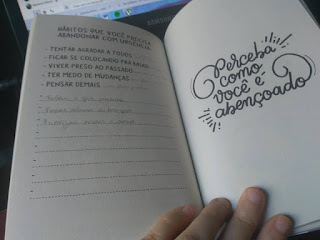 HÁBITOS QUE VOCÊ PRECISA
ABANDONAR COM URGÊNCIA
- TENTAR AGRADAR A TODOS
- FICAR SE COLOCANDO PRA BAIXO
- VIVER PRESO AO PASSADO
- TER MEDO DE MUDANÇAS
- PENSAR DEMAIS
Perceba
como
você é
abençoado